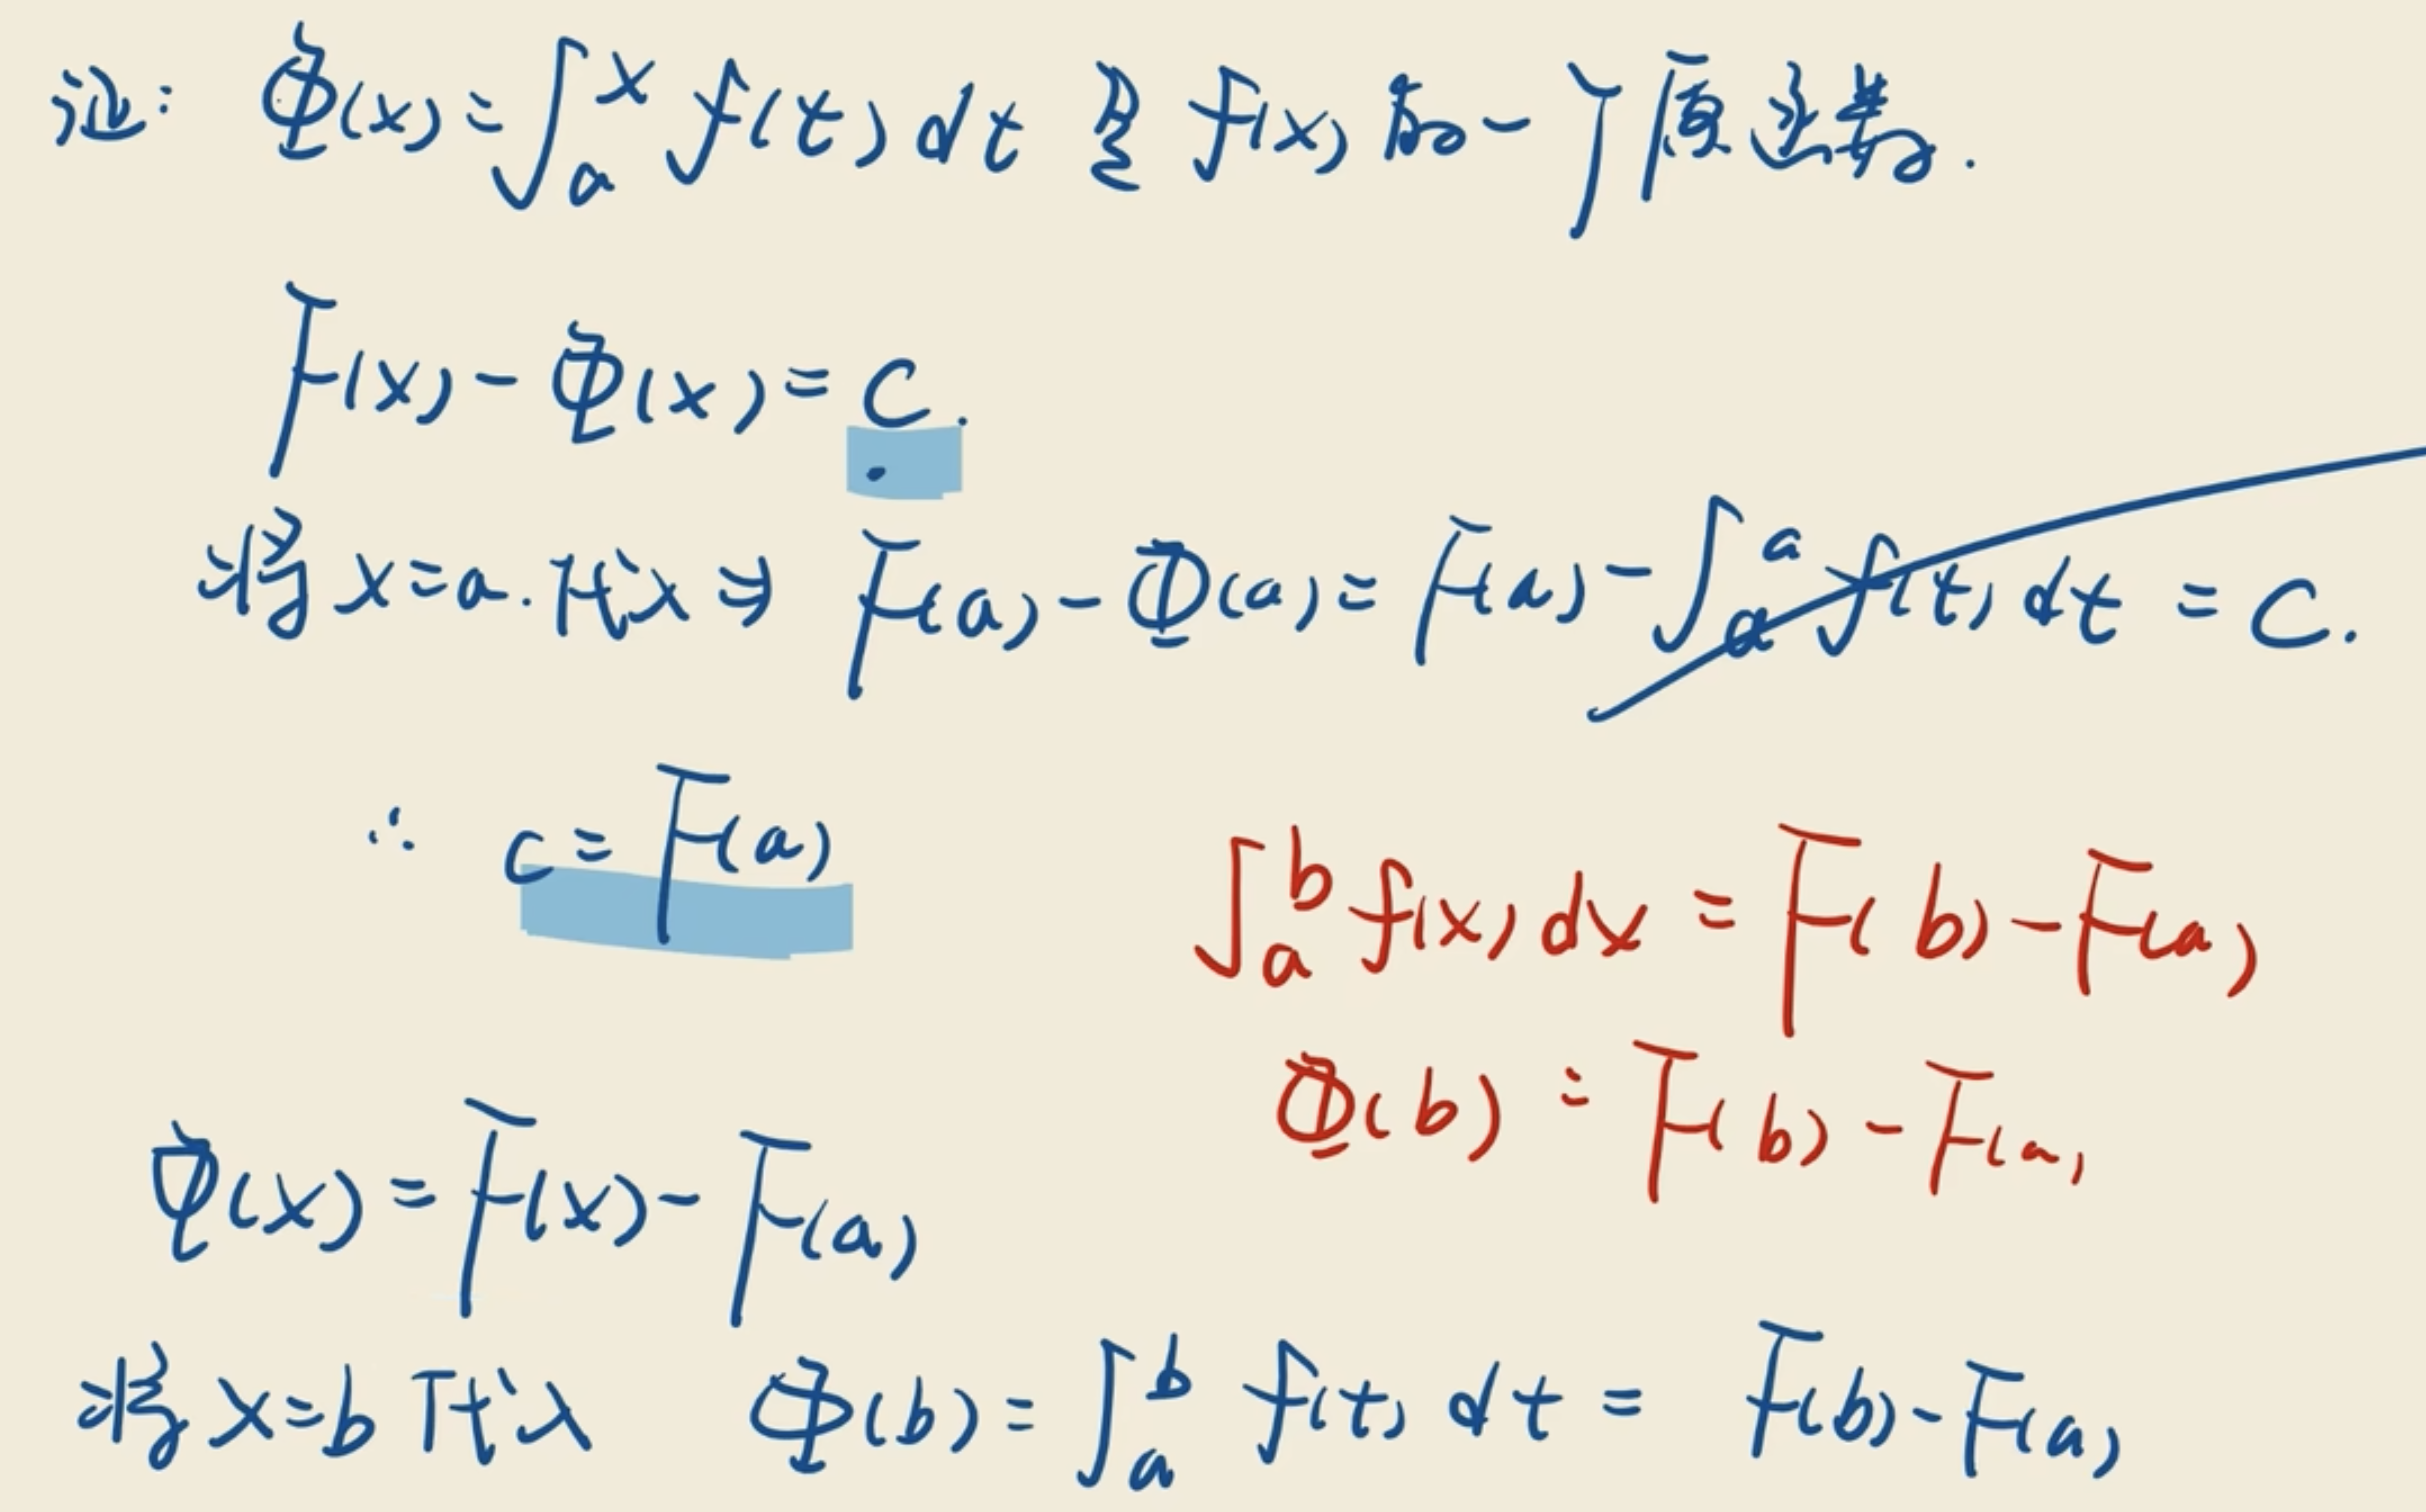 证: Φ(x)=∫ₐˣ f(t)dt 是 f(x) 的一个原函数.
F(x)-Φ(x)=C.
将x=a.代入⇒ F(a)-Φ(a)=F(a)-∫ₐᵃ f(t)dt=C.
∴ C=F(a)
∫ₐᵇ f(x)dx=F(b)-F(a)
Φ(b)=F(b)-F(a)
Φ(x)=F(x)-F(a)
将x=b代入 Φ(b)=∫ₐᵇ f(t)dt=F(b)-F(a)